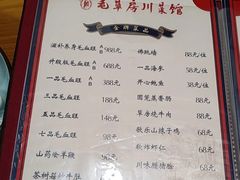 毛草房川菜馆
金牌菜品
滋补养身毛血旺 A B 988元
升级版毛血旺 A B 688元
一品毛血旺 A B 388元
三品毛血旺 188元
五品毛血旺 148元
七品毛血旺 98元
山药烩羊鞭 96元
茶树菇
佛跳墙 88元/位
一品海参 58元/位
开心鲍鱼 38元/位
团笼蒸香肠 58元
草房烧牛肉 68元
歌乐山辣子鸡 68元
软炸虾仁 68元
川味腰猪脸 68元